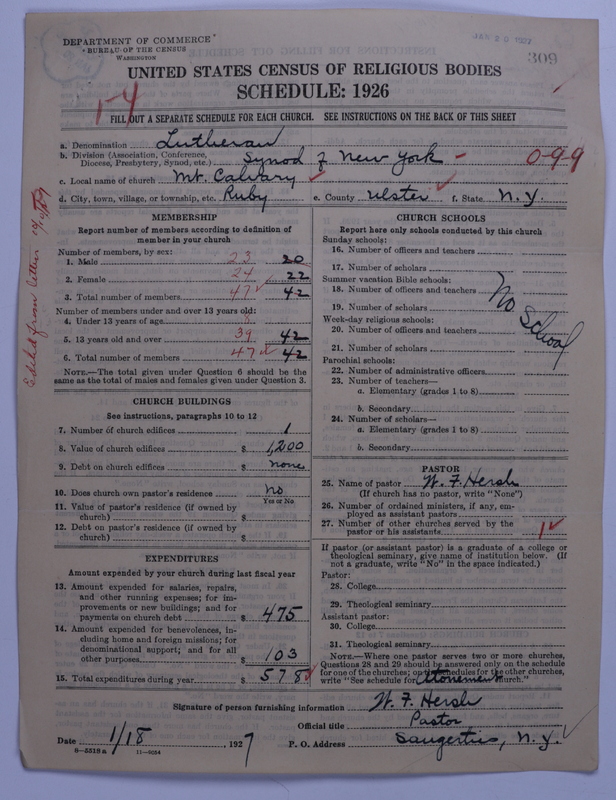 JAN 20 1927
309
DEPARTMENT OF COMMERCE
BUREAU OF THE CENSUS
WASHINGTON
UNITED STATES CENSUS OF RELIGIOUS BODIES
SCHEDULE: 1926
1-4
FILL OUT A SEPARATE SCHEDULE FOR EACH CHURCH. SEE INSTRUCTIONS ON THE BACK OF THIS SHEET
a. Denomination Lutheran
b. Division (Association, Conference,
Diocese, Presbytery, Synod, etc.) Synod of New York - 0-9-9
c. Local name of church Mt. Calvary
d. City, town, village, or township, etc. Ruby e. County Ulster f. State N.Y.
Edited from letter
MEMBERSHIP
Report number of members according to definition of
member in your church
Number of members, by sex:
1. Male 23 20
2. Female 24 22
3. Total number of members 47 42
Number of members under and over 13 years old:
4. Under 13 years of age 8
5. 13 years old and over 39 42
6. Total number of members 47 42
NOTE.—The total given under Question 6 should be the
same as the total of males and females given under Question 3.
CHURCH BUILDINGS
See instructions, paragraphs 10 to 12
7. Number of church edifices 1
8. Value of church edifices $ 1,200
9. Debt on church edifices $ none
10. Does church own pastor's residence no
Yes or No
11. Value of pastor's residence (if owned by
church) $
12. Debt on pastor's residence (if owned by
church) $
EXPENDITURES
Amount expended by your church during last fiscal year
13. Amount expended for salaries, repairs,
and other running expenses; for im-
provements or new buildings; and for
payments on church debt $ 475
14. Amount expended for benevolences, in-
cluding home and foreign missions; for
denominational support; and for all
other purposes $ 103
15. Total expenditures during year $ 578
CHURCH SCHOOLS
Report here only schools conducted by this church
Sunday schools:
16. Number of officers and teachers
17. Number of scholars
Summer vacation Bible schools:
18. Number of officers and teachers
19. Number of scholars
No School
Week-day religious schools:
20. Number of officers and teachers
21. Number of scholars
Parochial schools:
22. Number of administrative officers
23. Number of teachers—
a. Elementary (grades 1 to 8)
b. Secondary
24. Number of scholars—
a. Elementary (grades 1 to 8)
b. Secondary
PASTOR
25. Name of pastor W. F. Hersh
(If church has no pastor, write "None")
26. Number of ordained ministers, if any, em-
ployed as assistant pastors
27. Number of other churches served by the
pastor or his assistants 1
If pastor (or assistant pastor) is a graduate of a college or
theological seminary, give name of institution below. (If
not a graduate, write "No" in the space indicated.)
Pastor:
28. College
29. Theological seminary
Assistant pastor:
30. College
31. Theological seminary
NOTE.—Where one pastor serves two or more churches,
Questions 28 and 29 should be answered only on the schedule
for one of the churches; on the schedules for the other churches,
write "See schedule for Atonement church."
Signature of person furnishing information W. F. Hersh
Official title Pastor
Date 1/18, 1927 P. O. Address Saugerties, N.Y.
8—5518a 11—9054